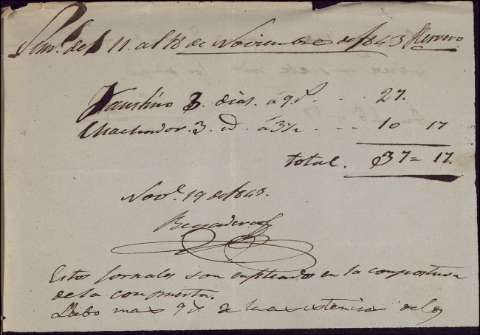 Sem.ª del 11 al 18 de Noviembre de 1843 Herrero
Faustino 3 dias á 9 r.s . . 27.
Machador. 3. id á 3½ . . . 10 17
total. 37 = 17.
Nov.e 19 de 1843.
Estos jornales son empleados en la compostura
de la compuerta.
Debo mas 9 r.s de la existencia del